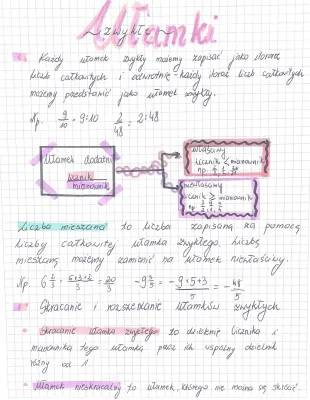 Ułamki
~ zwykłe ~
Każdy ułamek zwykły możemy zapisać jako iloraz
liczb całkowitych i odwrotnie - każdy iloraz liczb całkowitych
możemy przedstawić jako ułamek zwykły.
Np. 9/10 = 9:10 2/48 = 2:48
Ułamek dodatni
licznik
mianownik
właściwy
licznik < mianownik
np.
niewłaściwy
licznik ≥ mianownik
np.
Liczba mieszana to liczba zapisana za pomocą
liczby całkowitej i ułamka zwykłego. Liczbę
mieszaną możemy zamienić na ułamek niewłaściwy.
Np. 6 2/3 = = 20/3 -9 3/5 = - 9·5+3/5 = - 48/5
Skracanie i rozszerzanie ułamków zwykłych
Skracanie ułamka zwykłego to dzielenie licznika i
mianownika tego ułamka przez ich wspólny dzielnik
różny od 1
Ułamek nieskracalny to ułamek, którego nie można się skrócić.